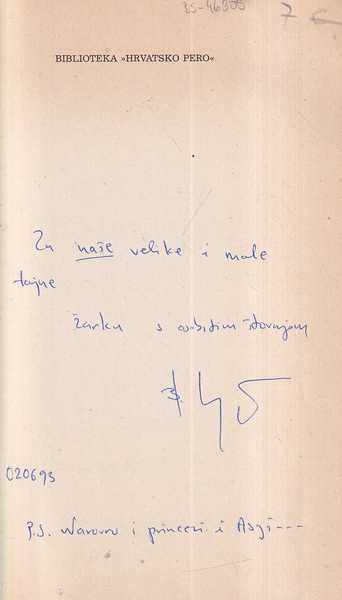 35-46305
7 €
BIBLIOTEKA »HRVATSKO PERO«
Za naše velike i male
tajne
Žarku s osobitim štovanjem
020693
P.S. i princezi i Asji---